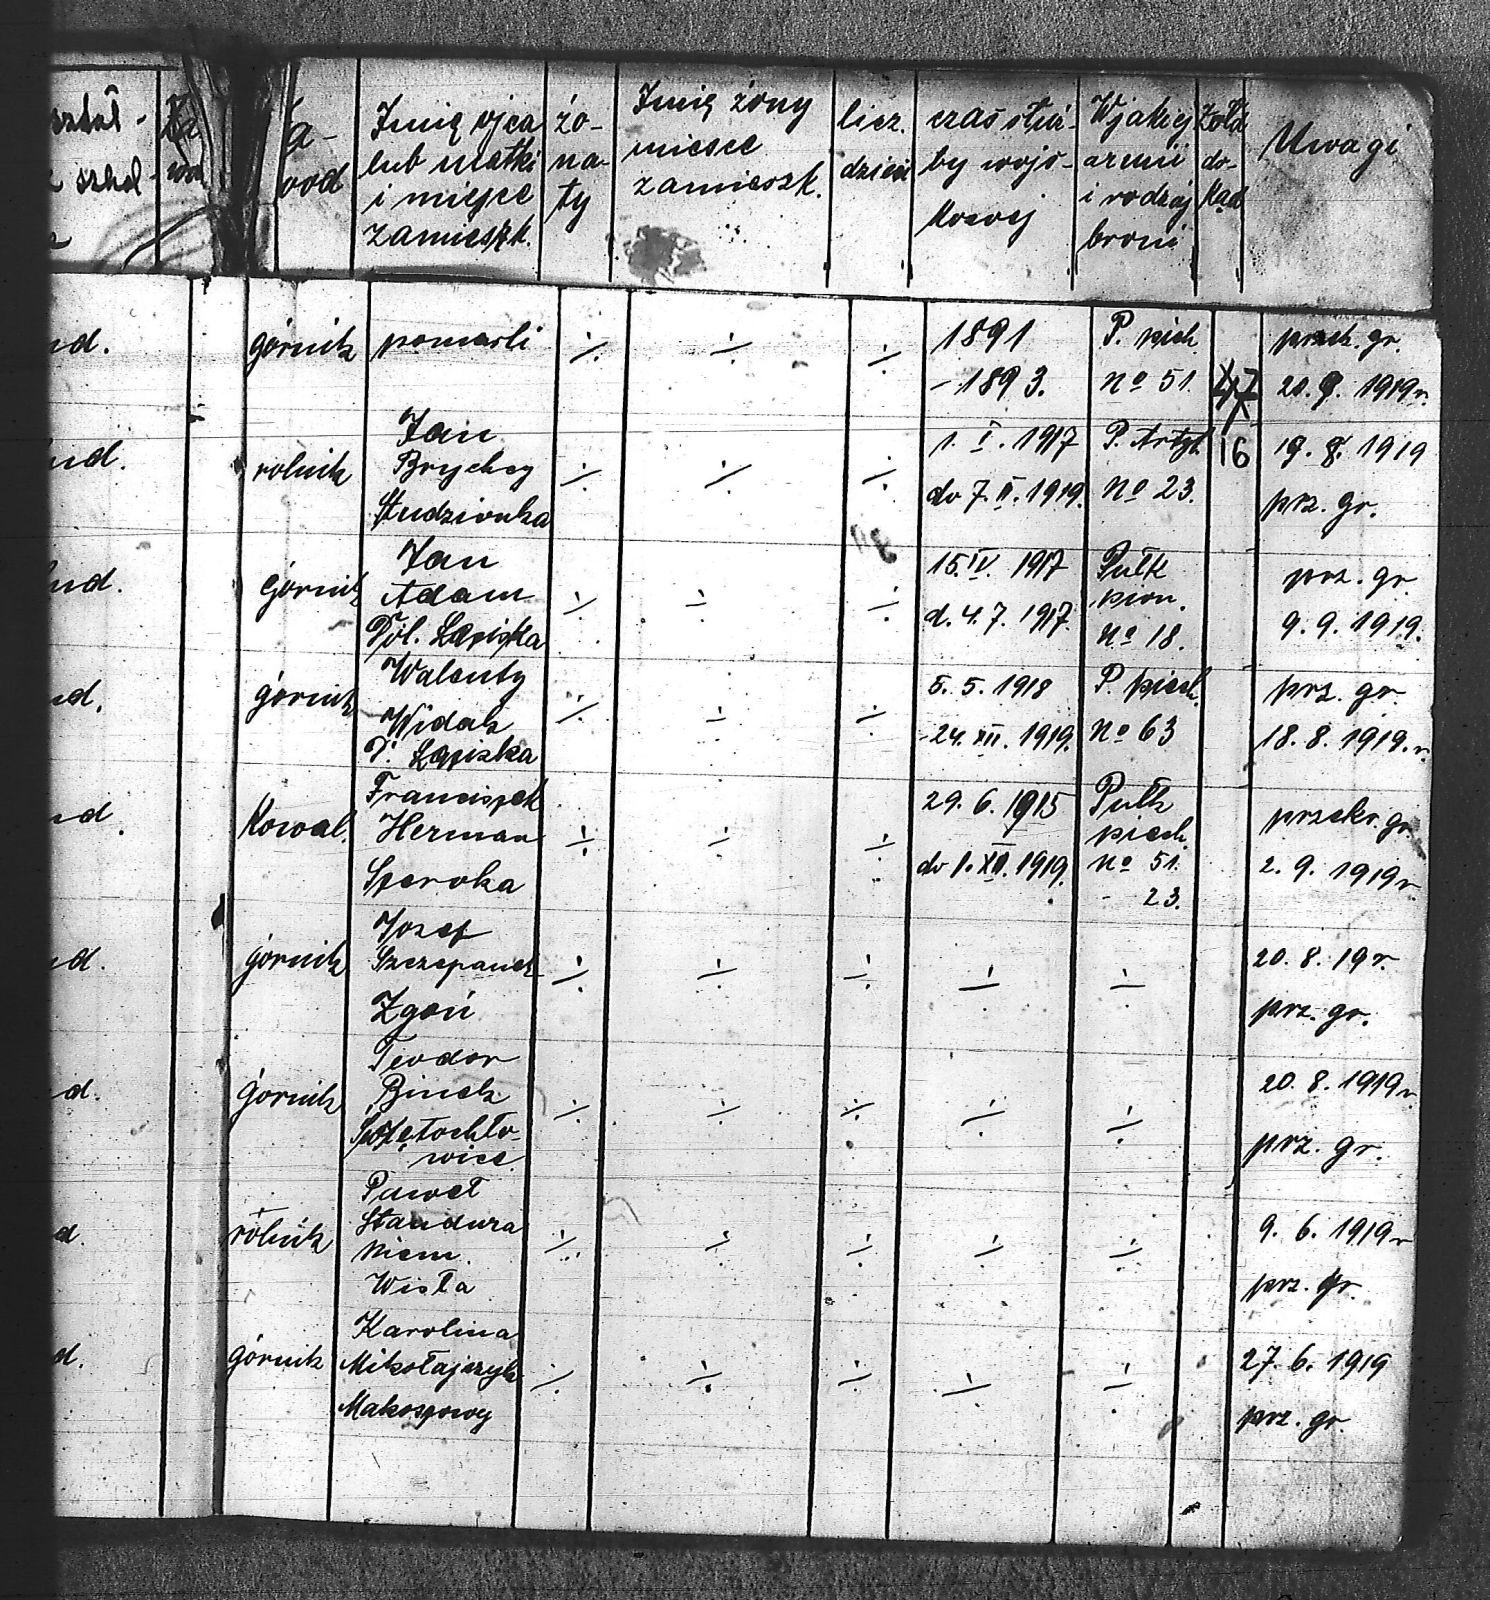 Imię ojca
lub matki
i miejsce
zamieszk.
żo-
na-
ty
Imię żony
miesce
zamieszk.
licz.
dzieci
czas służ-
by wojs-
kowej
W jakiej
armii
i rodzaj
broni
Żołd
do-
kąd
Uwagi
górnik pomarli ÷ ÷ ÷
1891
- 1893.
P. piech.
No 51.
47
przek. gr.
20. 9. 1919r.
rolnik
Jan
Brychcy
Studzionka
÷ ÷ ÷
1. I. 1917
do 7. II. 1919.
P. Artyl.
No 23.
16
19. 8. 1919
prz. gr.
górnik
Jan
Adam
Dól. Łaziska
÷ ÷ ÷
15. IV. 1917
d. 4. 7. 1917.
Pułk
pion.
No 18.
prz. gr.
9. 9. 1919.
górnik
Walenty
Widak
D. Łaziska
÷ ÷ ÷
5. 5. 1918
- 24. XII. 1919.
P. piech.
No 63
prz. gr.
18. 8. 1919. r.
Kowal.
Franciszek
Herman
Szeroka
÷ ÷ ÷
29. 6. 1915
do 1. XII. 1919.
Pułk
piech.
No 51.
- 23.
przekr. gr.
2. 9. 1919r
górnik
Jozef
Szczepanek
Zgoń
÷ ÷ ÷ ÷ ÷
20. 8. 19 r.
prz. gr.
górnik
Teodor
Binek
Świętochło-
wice
÷ ÷ ÷ ÷ ÷
20. 8. 1919 r.
prz. gr.
rolnik
Paweł
Standura
Niem.
Wisła
÷ ÷ ÷ ÷ ÷
9. 6. 1919 r
prz. gr.
górnik
Karolina
Mikołajczyk
Makoszowy
÷ ÷ ÷ ÷ ÷
27. 6. 1919
prz. gr.